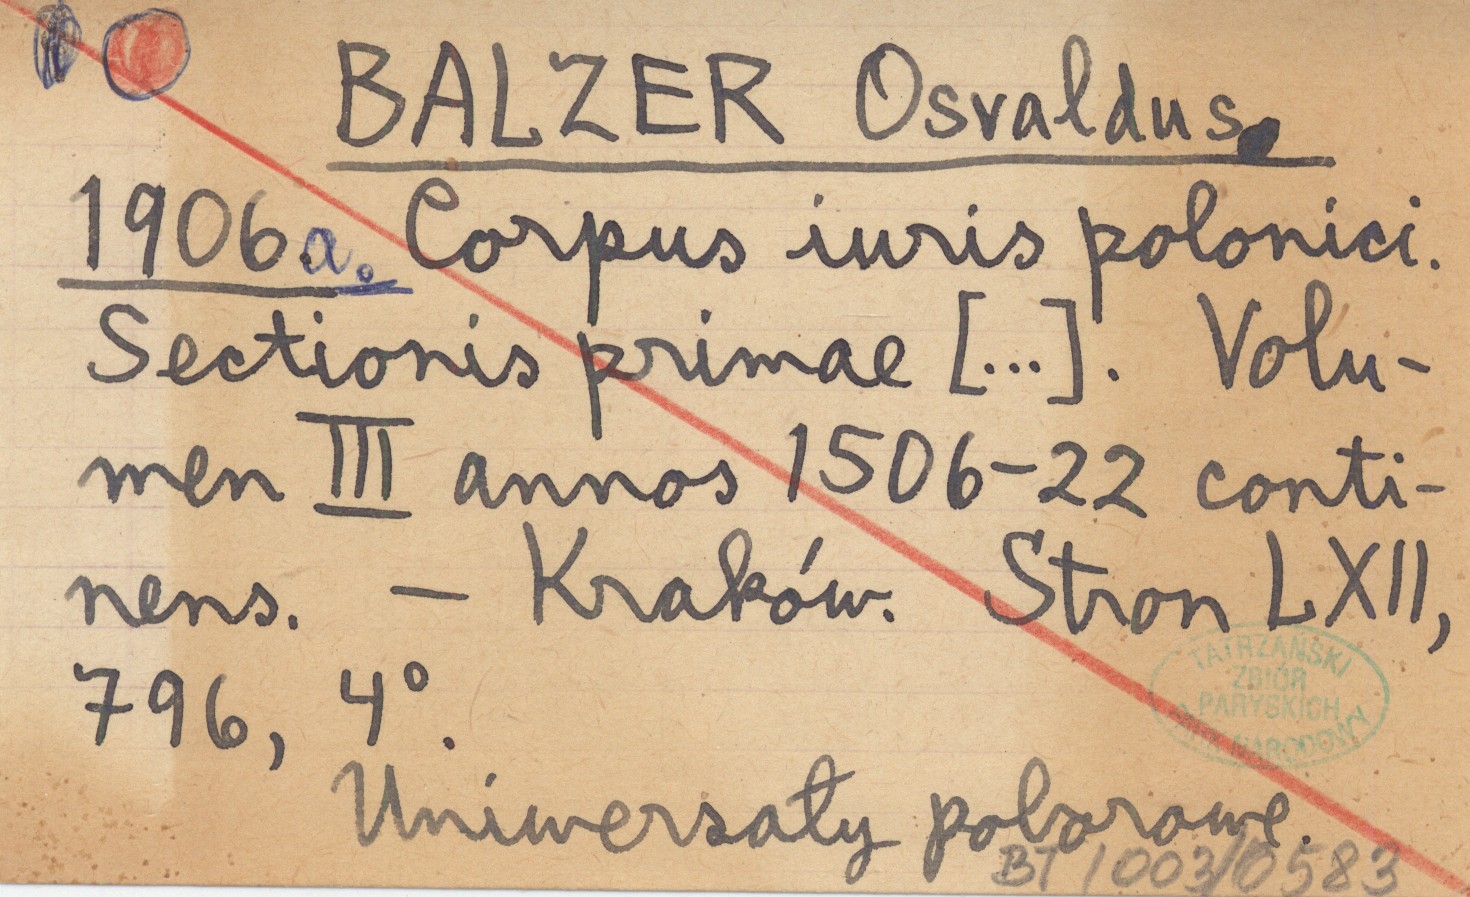 BALZER Osvaldus.
1906a. Corpus iuris polonici.
Sectionis primae [...]. Volu-
men III annos 1506-22 conti-
nens. — Kraków. Stron LXII,
796, 4°.
TATRZAŃSKI
ZBIÓR
PARYSKICH
NARODOWY
Uniwersały poborowe.
BT 1003/0583